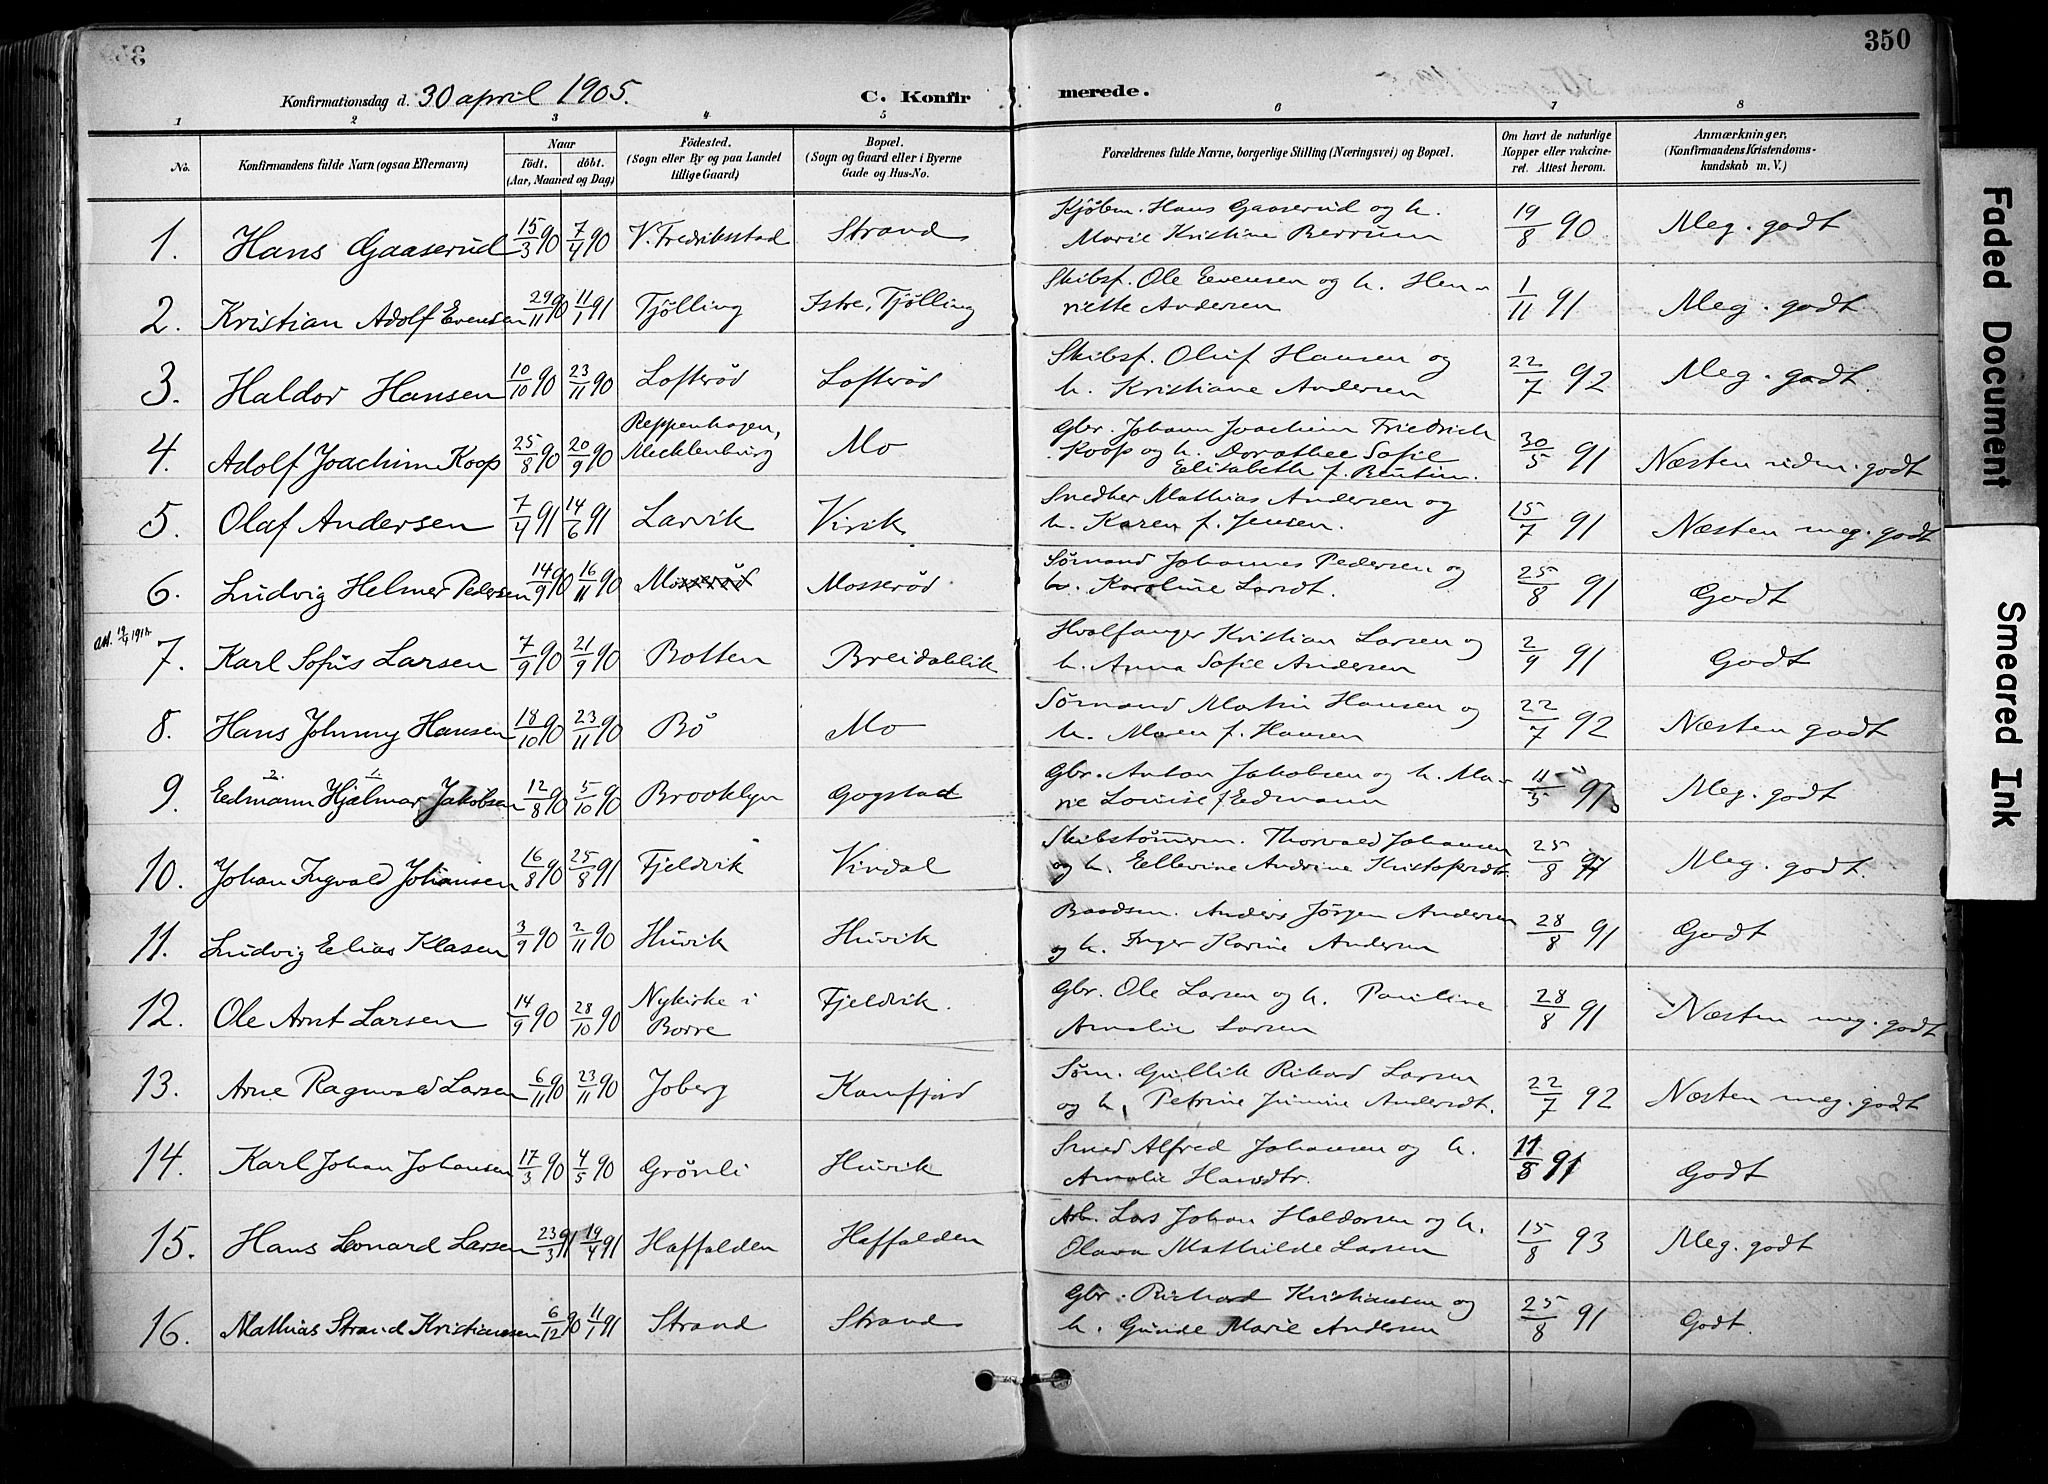 350
Konfirmationsdag d. 30 april 1905. C. Konfirmerede.
1 2 3 4 5 6 7 8
No. Konfirmandens fulde Navn (ogsaa Efternavn) Naar født. døbt. (Aar, Maaned og Dag) Fødested. (Sogn eller By og paa Landet tillige Gaard) Bopæl. (Sogn og Gaard eller i Byerne Gade og Hus-No. Forældrenes fulde Navne, borgerlige Stilling (Næringsvei) og Bopæl. Om havt de naturlige Kopper eller vakcineret. Attest herom. Anmærkninger, (Konfirmandens Kristendomskundskab m. V.)
1. Hans Gaaserud 15/3 90 7/4 90 V. Fredriksstad Strand Kjøbm. Hans Gaaserud og h. Marie Kristine Berrum 19/8 90 Meg. godt
2. Kristian Adolf Evensen 29/11 90 11/1 91 Tjølling Istre, Tjølling Skibsf. Ole Evensen og h. Henriette Andersen 1/11 91 Meg. godt
3. Haldor Hansen 10/10 90 23/11 90 Lofterød Lofterød Skibsf. Oluf Hansen og h. Kristiane Andersen 22/7 92 Meg. godt.
4. Adolf Joachim Koop 25/8 90 20/9 90 Reppenhagen, Mecklenburg Mo Gbr. Johann Joachim Friedrich Koop og h. Dorothee Sofie Elisabeth f. 30/5 91 Næsten udm. godt
5. Olaf Andersen 7/4 91 14/6 91 Larvik Virik Snedker Mathias Andersen og h. Karen f. Jensen. 15/7 91 Næsten meg. godt
6. Ludvig Helmer Pedersen 14/9 90 16/11 90 Mosserød Mosserød Sømand Johannes Pedersen og h. Karoline Larsdt. 25/8 91 Godt
7. Karl Sofus Larsen 7/9 90 21/9 90 Botten Breidablik Hvalfanger Kristian Larsen og h. Anna Sofie Andersen 2/9 91 Godt
8. Hans Johnny Hansen 18/10 90 23/11 90 Bø Mo Sømand Martin Hansen og h. Maren f. Hansen 22/7 92 Næsten godt
9. Eedmann Hjalmar Jakobsen 12/8 90 5/10 90 Brooklyn Gogstad Gbr. Anton Jakobsen og h. Marie Louise f Eedmann 11/5 97 Meg. godt
10. Johan Ingvald Johansen 16/8 90 25/8 91 Fjeldvik Vindal Skibstømerm. Thorvald Johansen og h. Eellevine Andrine Kristofersdt. 25/8 91 Meg. godt.
11. Ludvig Eelias Klasen 3/9 90 2/11 90 Huvik Huvik Baadsm. Anders Jørgen Andersen og h. Inger Karine Andersen 28/8 91 Godt
12. Ole Arnt Larsen 14/9 90 28/10 90 Nykirke i Borre Fjeldvik. Gbr. Ole Larsen og h. Pauline Amalie Larsen 28/8 91 Næsten meg. godt
13. Arne Ragnvald Larsen 6/11 90 23/11 90 Joberg Kamfjord Søm. Gullik Rikard Larsen og h. Petrine Jimine Andersdt. 22/7 92 Næsten meg. godt
14. Karl Johan Johansen 17/3 90 4/5 90 Grønli Huvik Smed Alfred Johansen og h. Amalie Hansdtr. 11/8 91 Godt
15. Hans Leonard Larsen 23/3 91 19/4 91 Haffalden Haffalden Arb. Lars Johan Haldorsen og h. Olava Mathilde Larsen 15/8 93 Meg. godt
16. Mathias Strand Kristiansen 6/12 90 11/1 91 Strand Strand Gbr. Richard Kristiansen og h. Gunde Marie Andersen 25/8 91 Godt.
Faded Document
Smeared Ink